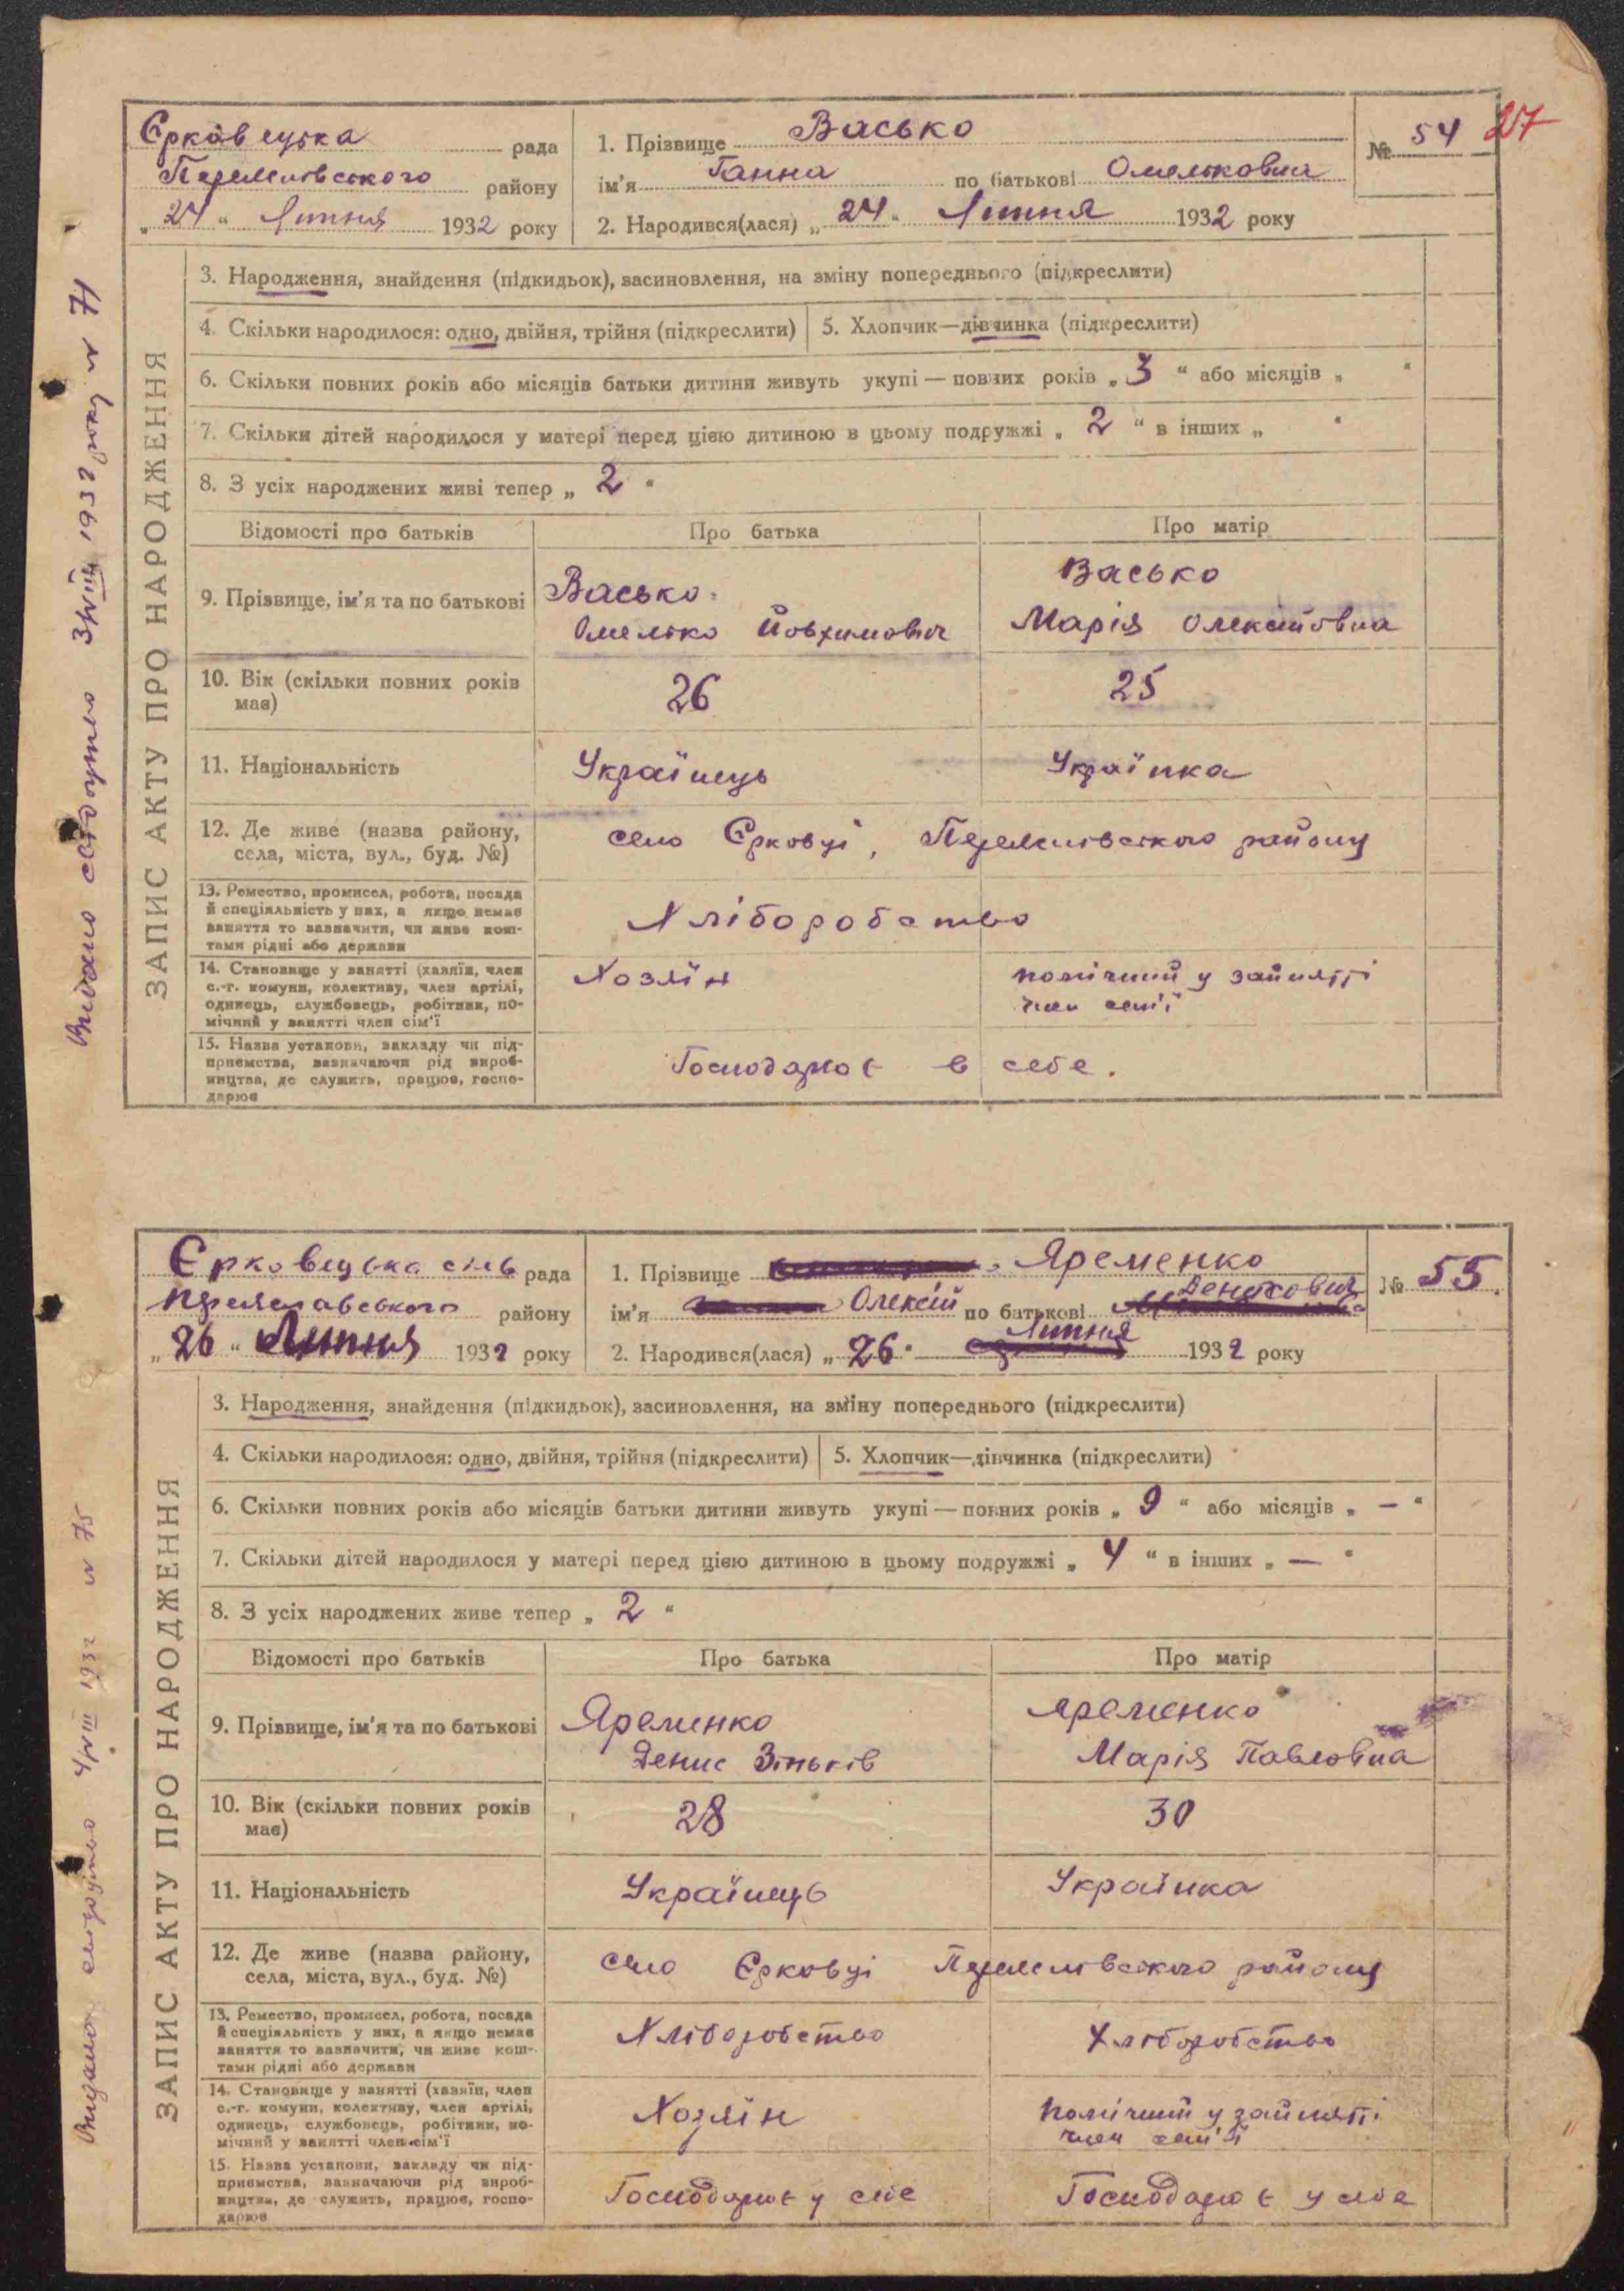 27
Єрковецька рада
Переяславського району
„ 24 “ Липня 1932 року
1. Прізвище Васько
ім’я Ганна по батькові Омельковна
2. Народився(лася) „ 24 “ Липня 1932 року
№ 54
ЗАПИС АКТУ ПРО НАРОДЖЕННЯ
3. Народження, знайдення (підкидьок), засиновлення, на зміну попереднього (підкреслити)
4. Скільки народилося: одно, двійня, трійня (підкреслити)
5. Хлопчик—дівчинка (підкреслити)
6. Скільки повних років або місяців батьки дитини живуть укупі — повних років „ 3 “ або місяців „ “
7. Скільки дітей народилося у матері перед цією дитиною в цьому подружжі „ 2 “ в інших „ “
8. З усіх народжених живі тепер „ 2 “
Відомості про батьків Про батька Про матір
9. Прізвище, ім’я та по батькові
Васько
Омелько Йовхимович
Васько
Марія Олексіївна
10. Вік (скільки повних років
має)
26 25
11. Національність Українець Українка
12. Де живе (назва району,
села, міста, вул., буд. №)
село Єрковці, Переяславського району
13. Ремество, промисел, робота, посада
й спеціяльність у них, а якщо немає
заняття то зазначити, чи живе кош-
тами рідні або держави
Хліборобство
14. Становище у занятті (хазяїн, член
с.-г. комуни, колективу, член артілі,
одинець, службовець, робітник, по-
мічний у занятті член сім’ї
Хозяїн
помічний у зайнятті
член семії
15. Назва установи, закладу чи під-
приємства, зазначаючи рід вироб-
ництва, де служить, працює, госпо-
дарює
Господарює в себе.
Видано свідоцтво 3/VIII 1932 року № 71
Єрковецька сіль рада
Переяславського району
„ 26 “ Липня 1932 року
1. Прізвище Яременко
ім’я Олексій по батькові Денисович
2. Народився(лася) „ 26 “ Липня 1932 року
№ 55.
ЗАПИС АКТУ ПРО НАРОДЖЕННЯ
3. Народження, знайдення (підкидьок), засиновлення, на зміну попереднього (підкреслити)
4. Скільки народилося: одно, двійня, трійня (підкреслити)
5. Хлопчик—дівчинка (підкреслити)
6. Скільки повних років або місяців батьки дитини живуть укупі — повних років „ 9 “ або місяців „ — “
7. Скільки дітей народилося у матері перед цією дитиною в цьому подружжі „ 4 “ в інших „ — “
8. З усіх народжених живе тепер „ 2 “
Відомості про батьків Про батька Про матір
9. Прізвище, ім’я та по батькові
Яременко
Денис Зіньків
Яременко
Марія Павловна
10. Вік (скільки повних років
має)
28 30
11. Національність Українець Українка
12. Де живе (назва району,
села, міста, вул., буд. №)
село Єрковці Переяславського району
13. Ремество, промисел, робота, посада
й спеціяльність у них, а якщо немає
заняття то зазначити, чи живе кош-
тами рідні або держави
Хліборобство Хліборобство
14. Становище у занятті (хазяїн, член
с.-г. комуни, колективу, член артілі,
одинець, службовець, робітник, по-
мічний у занятті член сім’ї
Хозяїн
помічний у зайнятті
член сем’ї
15. Назва установи, закладу чи під-
приємства, зазначаючи рід вироб-
ництва, де служить, працює, госпо-
дарює
Господарює у себе Господарює у себе
Видано свідоцтво 4/VIII 1932 № 75